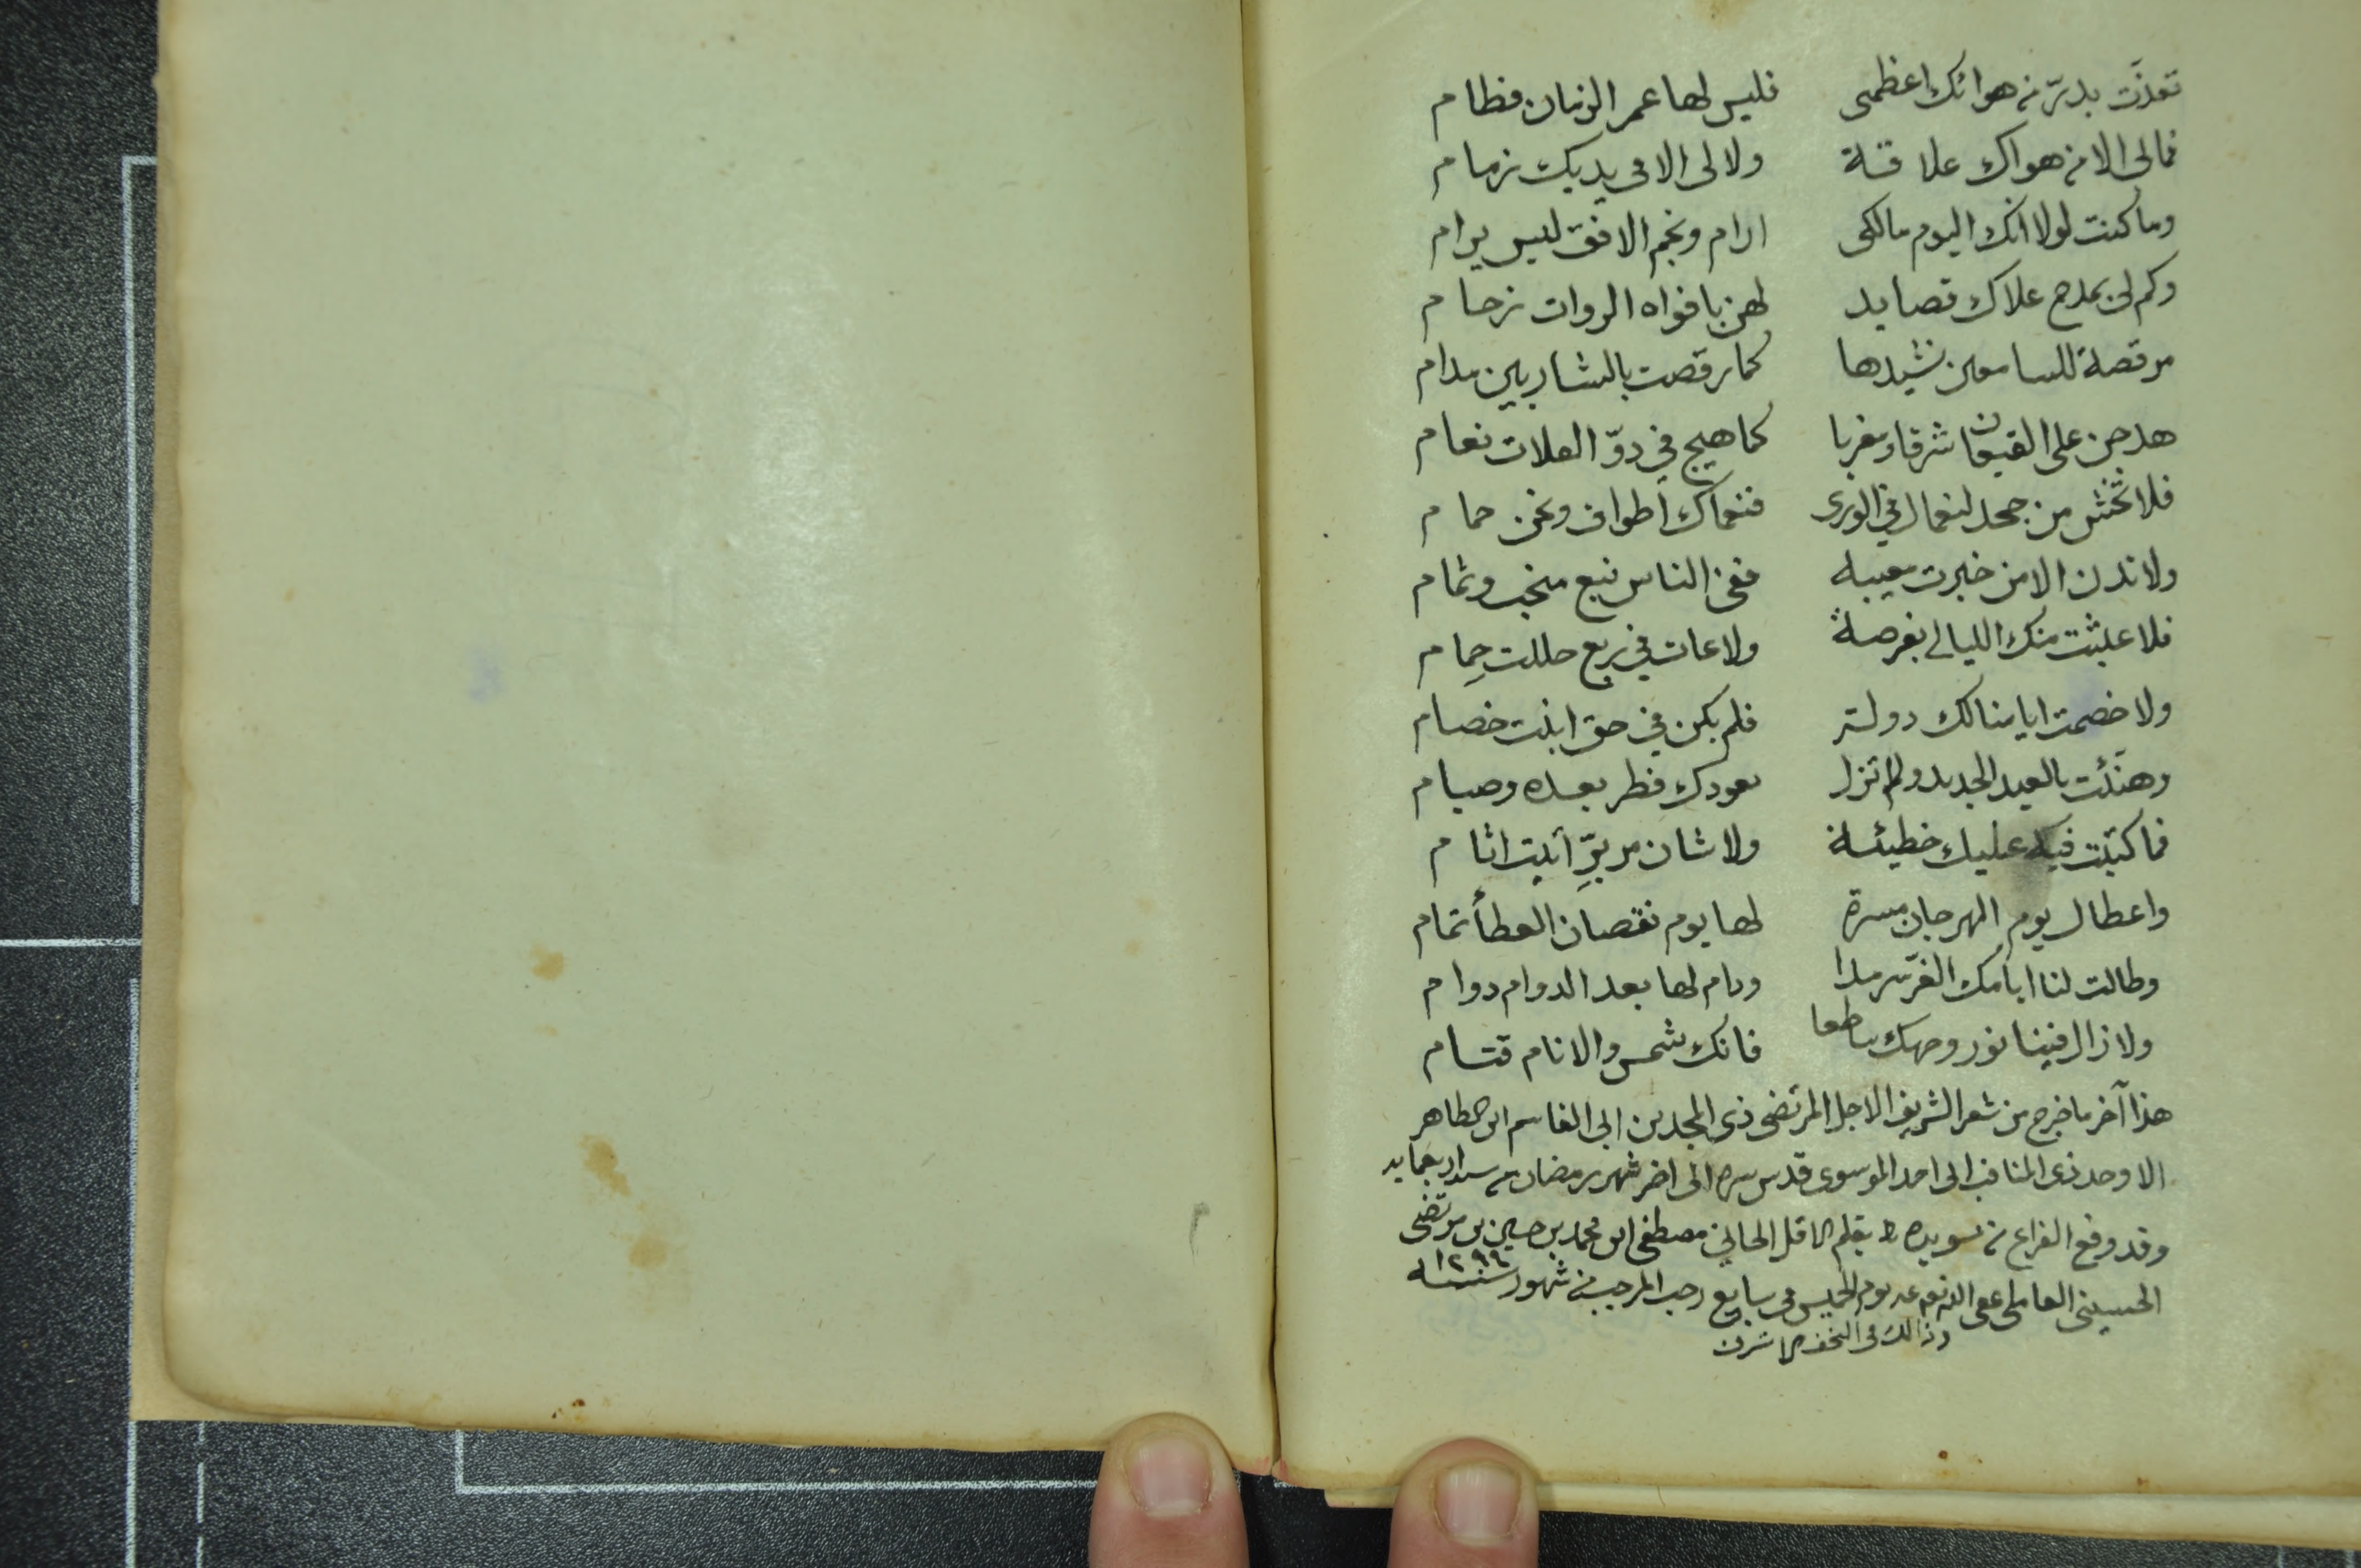 تغذت بدرّ من هوائك اعظمى فليس لها عمر الزمان فطام
فمالى الا من هواك علاقتة ولا لى الا فى يديك زمام
وما كنت لولا انك اليوم مالكى ارام ونجم الافق ليس يرام
وكم لى بمدح علاك قصايد لهن بافواه الروات زحام
مرقصة للسامعين نشيدها كما رقصت بالشاربين مدام
هدجن على القيعان شرقا ومغربا كما هيج في دوّ الفلات نعام
فلا تخش من جحد لنعمال في الورى فنعماك اطواق ونحن حمام
ولا تدن الا من خبرت مغيبه ففى الناس نبع منجب وثمام
فلا عبثت منك الليالي بفرصة ولا عاث في ربع حللت حِمام
ولا خصمت ايامنا لك دولة فلم يكن في حق ابنت خصام
وهنّئت بالعيد الجديد ولم تزل يعودك فطر بعده وصيام
فما كتبت فيه عليك خطيئة ولا شان مر برِّ اتيت اثام
واعطال يوم المهرجان مسرة لها يوم نقصان العطأ تمام
وطالت لنا ايامك الغرّ سرمدا ودام لها بعد الدوام دوام
ولا زال فينا نور وجهك ساطعا فانك شمس والانام قتام
هذا آخر ما خرج من شعر الشريف الاجل المرتضى ذى المجدين ابى القاسم ابن الطاهر
الاوحد ذى المناقب ابى احمد الموسوى قدس سره الى اخر شهر رمضان من سنه اربعمايه
وقد وقع الفراغ من تسويده بقلم الاقل الجاني مصطفى ابن محمد بن حسين بن مرتضى
الحسينى العاملى عفى الله عنه يوم الخميس فى سابع رجب المرجب من شهور سنة ١٢٩٩
وذالك فى النجف الاشرف